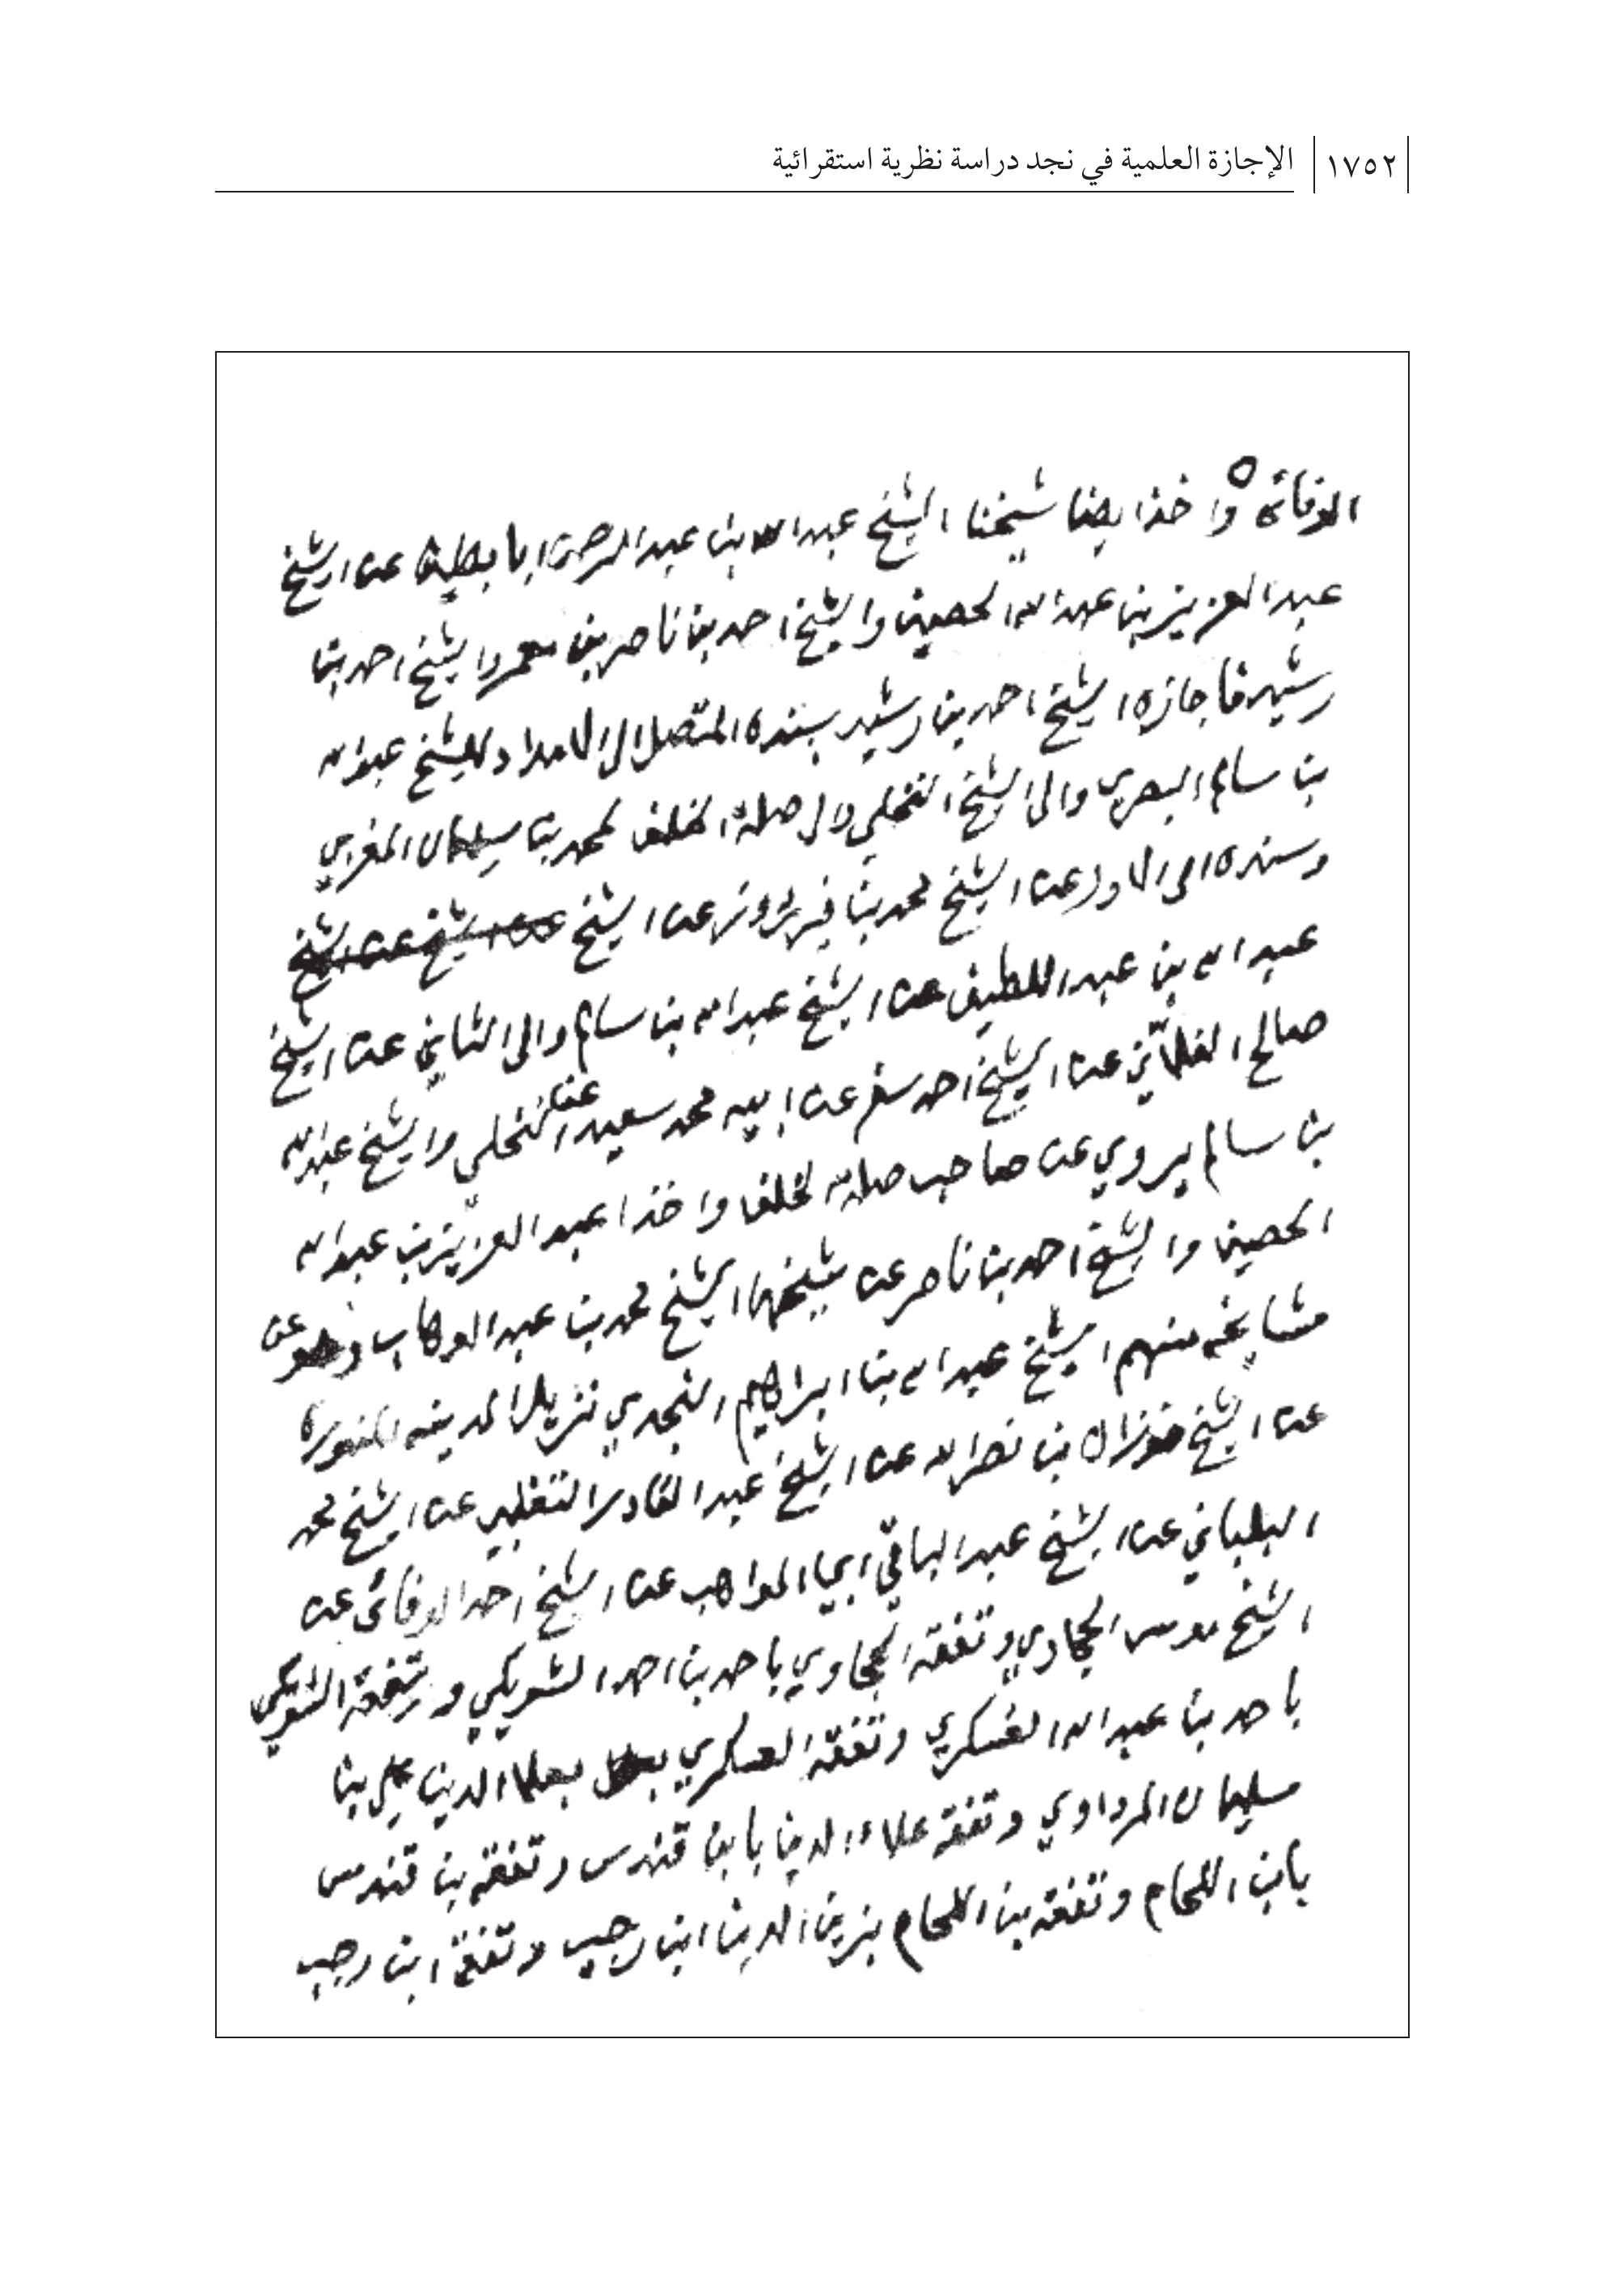 ١٧٥٢ الإجازة العلمية في نجد دراسة نظرية استقرائية
الوفائه واخذ ايضا شيخنا الشيخ عبد الله بن عبد الرحمن ابا بطين عن الشيخ
عبد العزيز بن عبد الله الحصين والشيخ احمد بن ناصر بن معمر والشيخ احمد بن
رشيد فاجازه الشيخ احمد بن رشيد بسنده المتصل الى الامداد للشيخ عبد الله
بن سالم البصري والى الشيخ النخلي والى صلة الخلف لمحمد بن سليمان المغربي
وسنده الى الاول عن الشيخ محمد بن فيروز عن الشيخ عن الشيخ عن الشيخ
عبد الله بن عبد اللطيف عن الشيخ عبد الله بن سالم والى الثاني عن الشيخ
صالح الفلاني عن الشيخ احمد سفر عن ابيه محمد سعيد عن النخلي والشيخ عبد الله
بن سالم يروي عن صاحب صلة الخلف واخذ عبد العزيز بن عبد الله
الحصين والشيخ احمد بن ناصر عن شيخهما الشيخ محمد بن عبد الوهاب وهو عن
مشايخه منهم الشيخ عبد الله بن ابراهيم النجدي نزيل المدينه المنوره
عن الشيخ فوزان بن نصر الله عن الشيخ عبد القادر التغلبي عن الشيخ محمد
البلباني عن الشيخ عبد الباقي ابي المواهب عن الشيخ احمد الوفائي عن
الشيخ موسى الحجاوي وتفقه الحجاوي باحمد بن احمد الشويكي وتفقه الشويكي
باحمد بن عبد الله العسكري وتفقه العسكري بعلاء الدين علي بن
سليمان المرداوي وتفقه علاء الدين بابن قندس وتفقه بن قندس
بابن اللحام وتفقه بن اللحام بزين الدين ابن رجب وتفقه ابن رجب